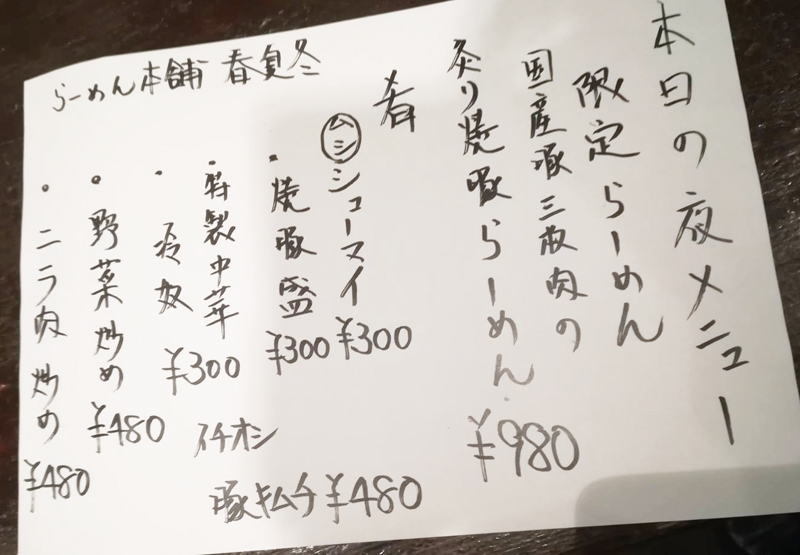 本日の夜メニュー
限定らーめん
国産豚三枚肉の
炙り焼豚らーめん
¥980
肴
ムシシューマイ
¥300
・焼豚盛
¥300
・特製中華
・冷奴
¥300
イチオシ
豚キムチ¥480
・野菜炒め
¥480
・ニラ肉炒め
¥480
らーめん本舗 春夏冬